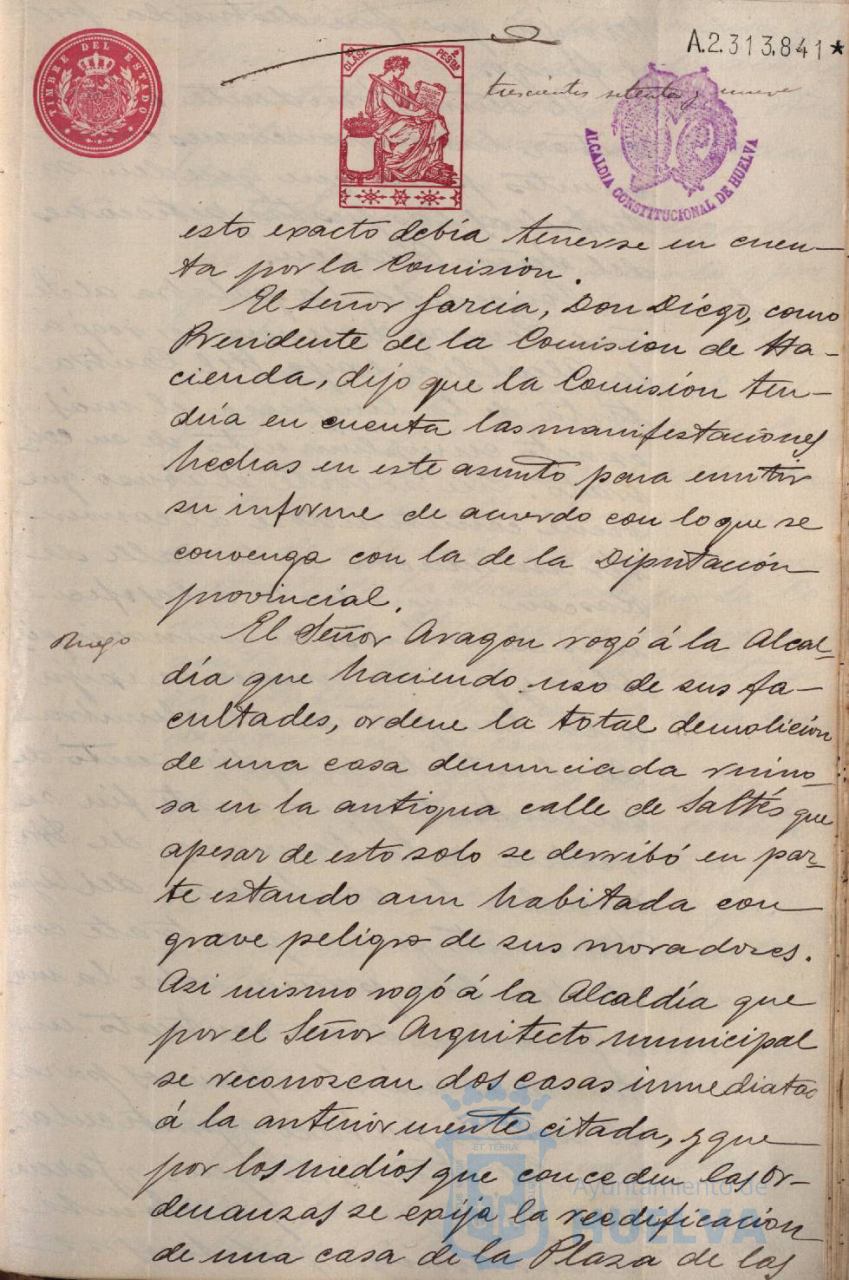 A.2.313.841*
TIMBRE DEL ESTADO
CLASE
2 PESTAS
trescientos setenta y nueve
ALCALDIA CONSTITUCIONAL DE HUELVA
esto exacto debía tenerse en cuen-
ta por la Comisión.
El Señor Garcia, Don Diego, como
Presidente de la Comision de Ha-
cienda, dijo que la Comisión ten-
dria en cuenta las manifestaciones
hechas en este asunto para emitir
su informe de acuerdo con lo que se
convenga con la de la Diputación
provincial.
Ruego
El Señor Aragon rogó á la Alcal-
día que haciendo uso de sus fa-
cultades, ordene la total demolición
de una casa denunciada ruino-
sa en la antigua calle de Saltés que
apesar de esto solo se derribó en par-
te estando aun habitada con
grave peligro de sus moradores.
Asi mismo rogó á la Alcaldía que
por el Señor Arquitecto municipal
se reconozcan dos casas inmediatas
á la anteriormente citada, y que
por los medios que conceden las or-
denanzas se exija la reedificación
de una casa de la Plaza de las
ET TERRÆ
Ayuntamiento de
HUELVA